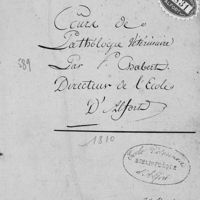 Cours de
Pathologie Vétérinaire
Par Chabert
Directeur de l'Ecole
D'Alfort
589
1810
Ecole Vétérinaire
BIBLIOTHEQUE
d'Alfort